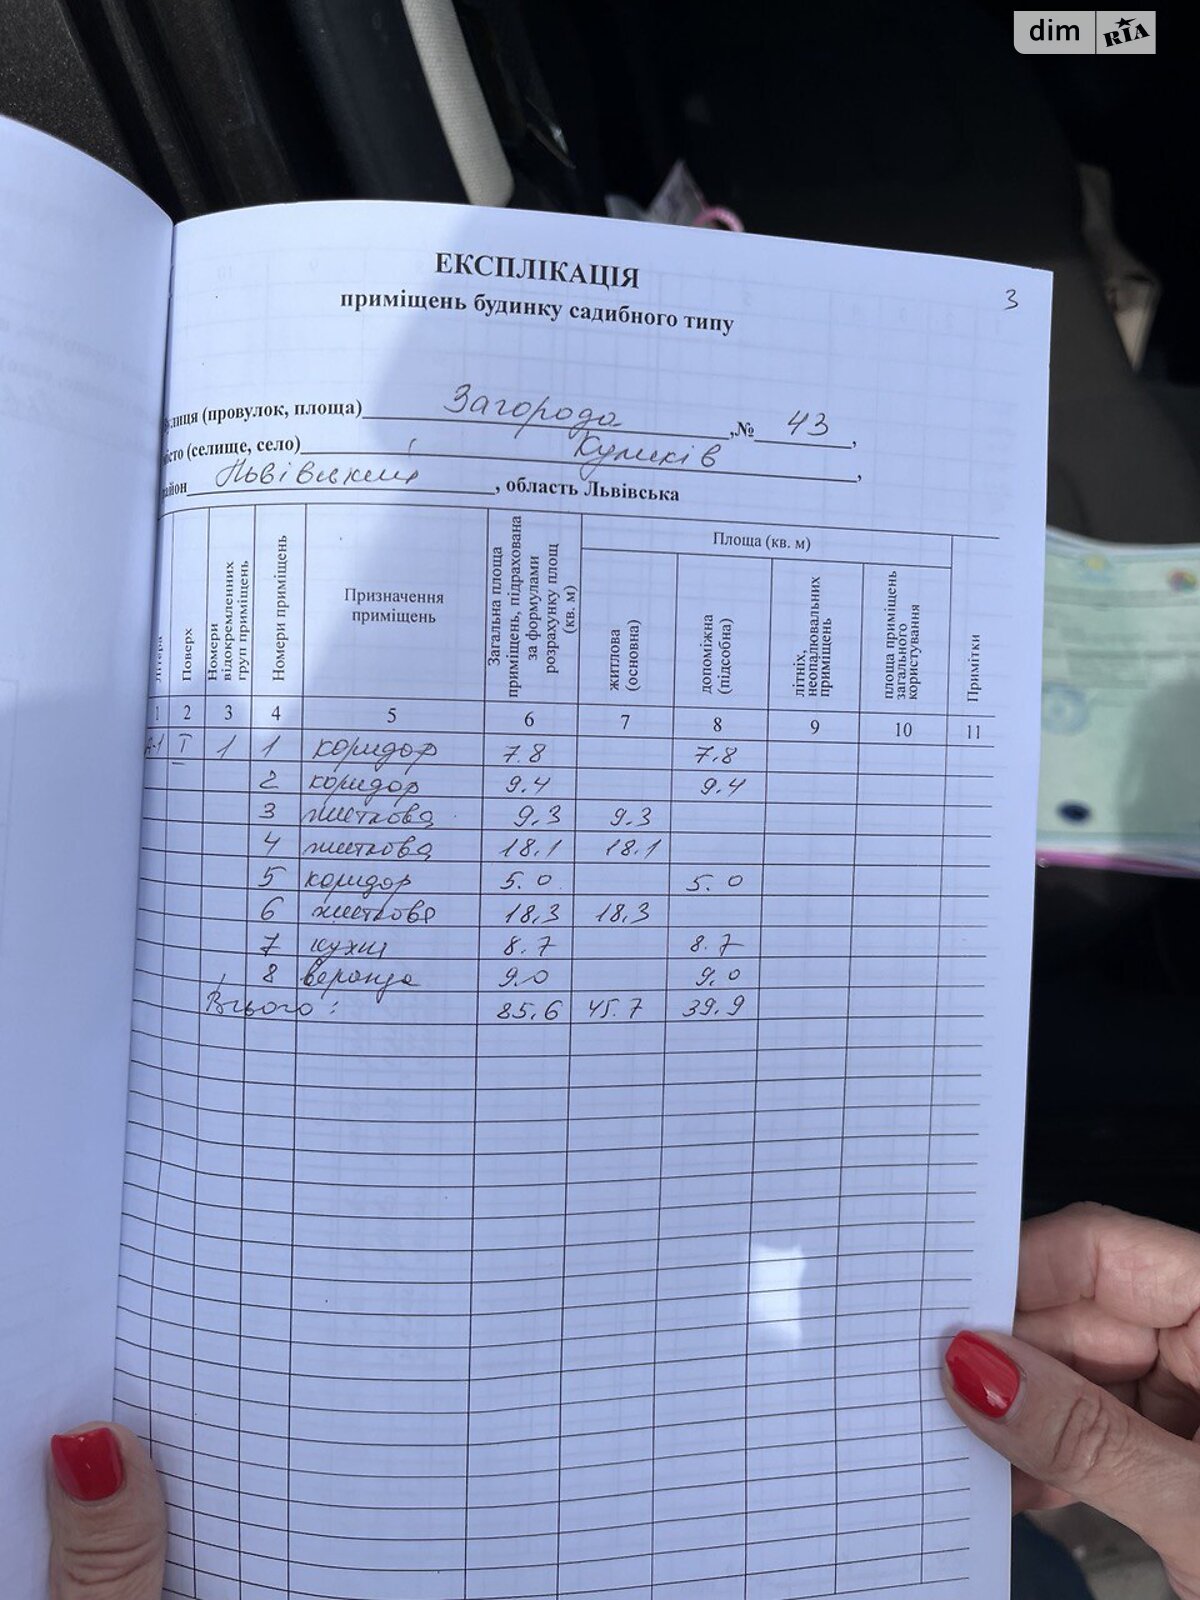 dim RIA
3
ЕКСПЛІКАЦІЯ
приміщень будинку садибного типу
вулиця (провулок, площа) Загорода, № 43,
місто (селище, село) Куликів,
район Львівський, область Львівська
Літера
Поверх
Номери відокремленних груп приміщень
Номери приміщень
Призначення приміщень
Загальна площа приміщень, підрахована за формулами розрахунку площ (кв. м)
Площа (кв. м)
житлова (основна)
допоміжна (підсобна)
літніх, неопалювальних приміщень
площа приміщень загального користування
Примітки
1 2 3 4 5 6 7 8 9 10 11
А-1 I 1 1 коридор 7.8 7.8
2 коридор 9.4 9.4
3 житлова 9.3 9.3
4 житлова 18.1 18.1
5 коридор 5.0 5.0
6 житлова 18,3 18,3
7 кухня 8.7 8.7
8 веранда 9.0 9.0
Всього: 85,6 45.7 39.9